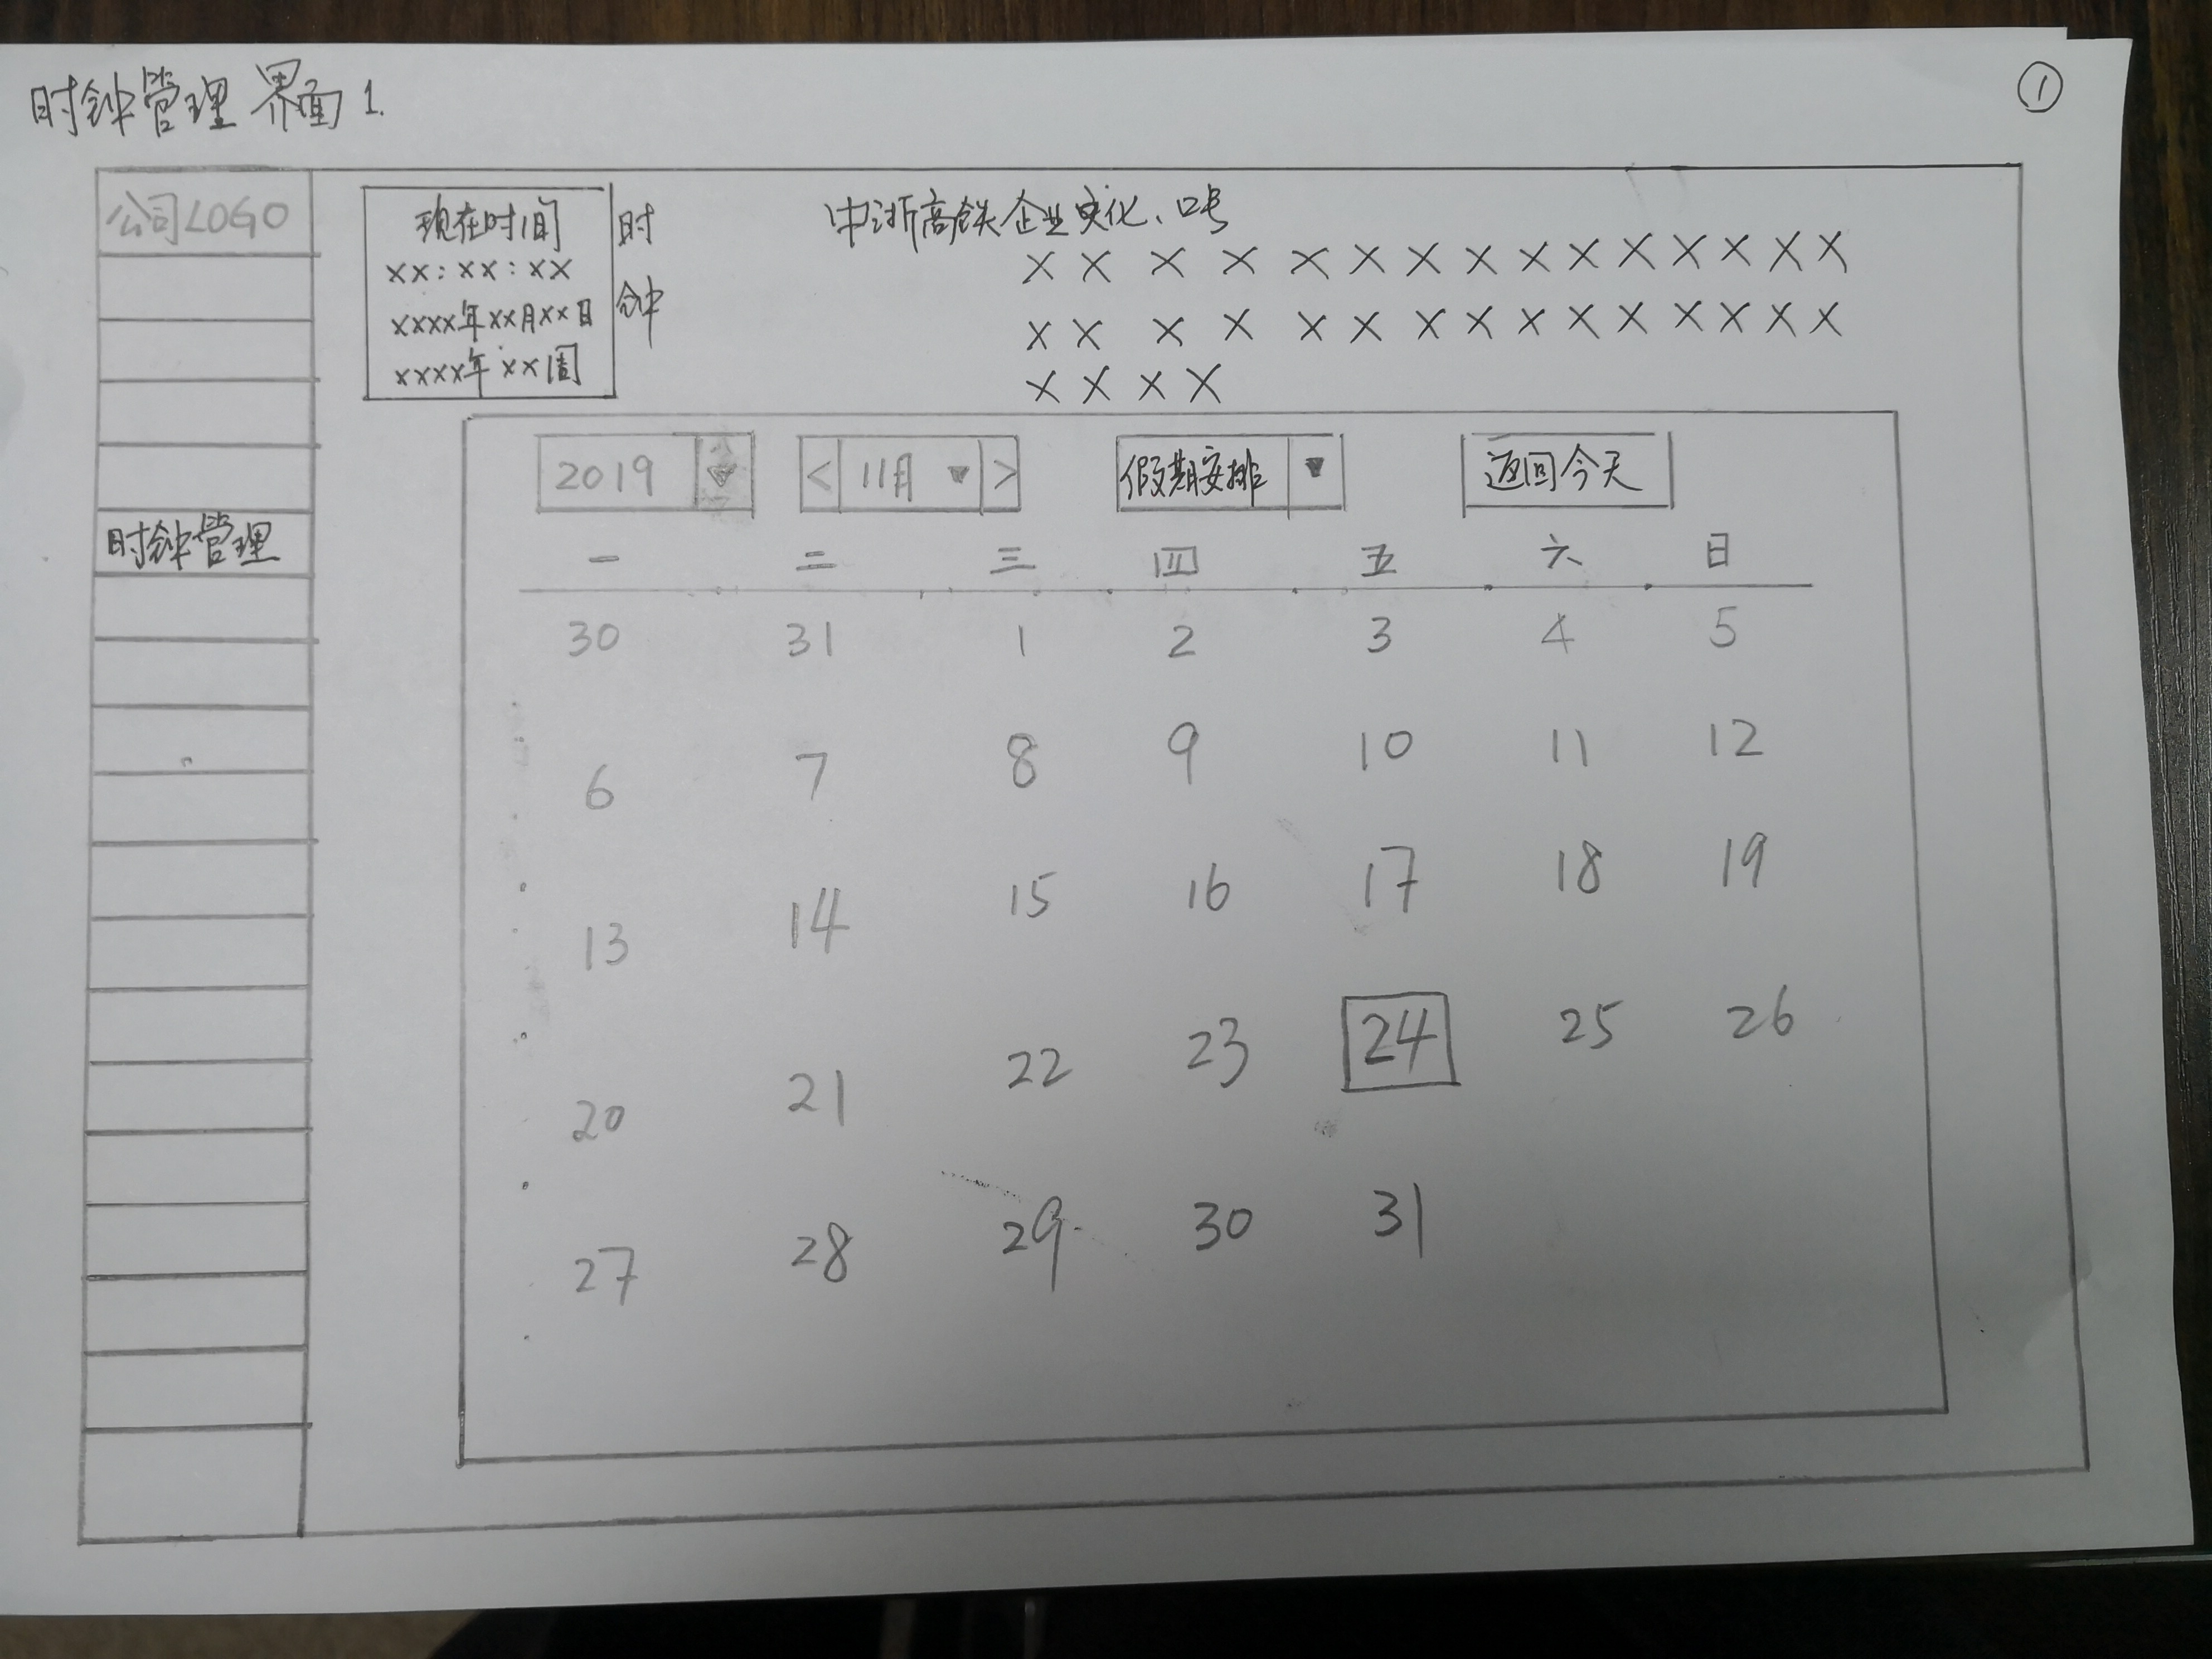 时钟管理界面1.
①
公司LOGO
时钟管理
现在时间
xx:xx:xx
xxxx年xx月xx日
xxxx年xx周
时
钟
中浙高铁企业文化、口号
X X X X X X X X X X X X X X X
X X X X X X X X X X X X X X X
X X X X
2019 ▼
< 11月 ▼ >
假期安排 ▼
返回今天
一 二 三 四 五 六 日
30 31 1 2 3 4 5
6 7 8 9 10 11 12
13 14 15 16 17 18 19
20 21 22 23 24 25 26
27 28 29 30 31